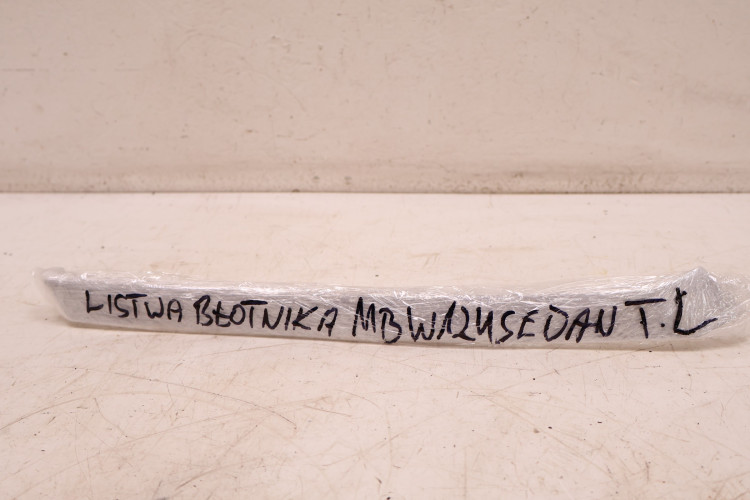 LISTWA BŁOTNIKA MB W124 SEDAN T.L